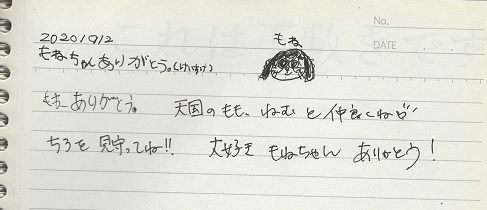 No.
DATE
もね
20201912
もねちゃんありがとう。(けいすけ)
もねーありがとう。 天国のもも、ねむと仲良くね
ちろを見守ってね!! 大好き もねちゃん ありがとう!